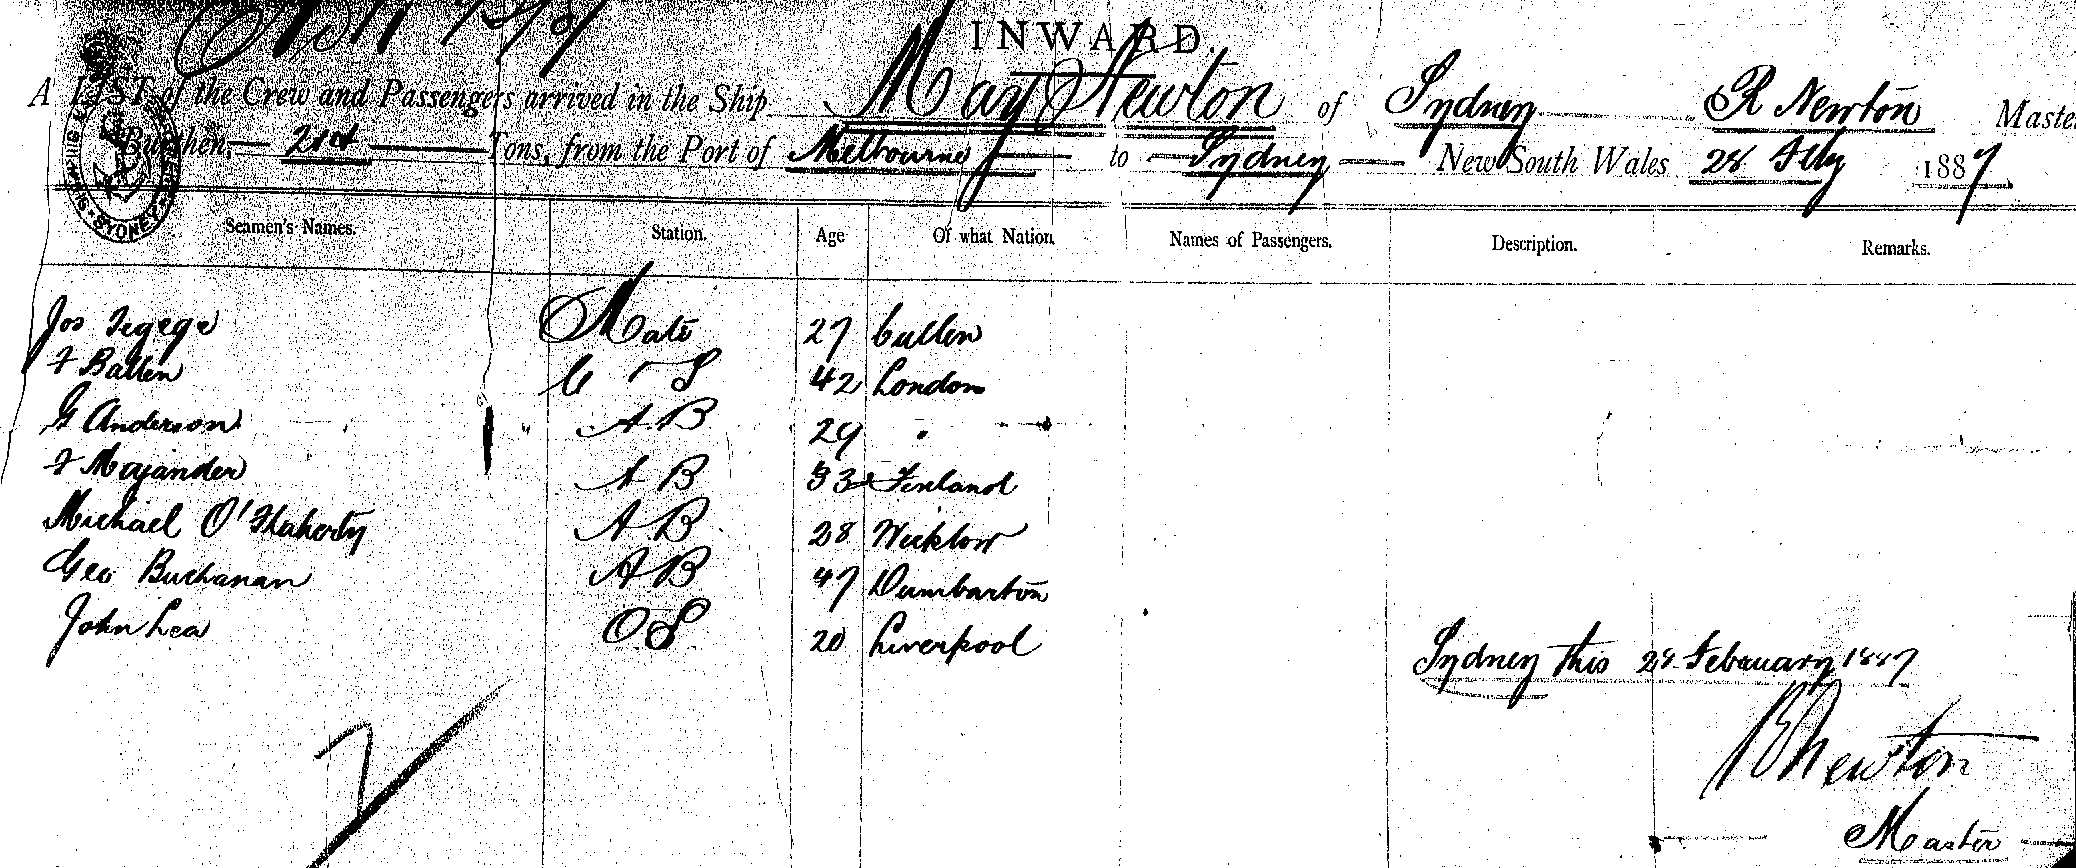 INWARD.
A LIST of the Crew and Passengers arrived in the Ship Mary Newton of Sydney R Newton Master
Burthen, Tons, from the Port of Melbourne to Sydney New South Wales 28 Feby 1887
SYDNEY
Seamen's Names. Station. Age Of what Nation Names of Passengers. Description. Remarks.
Jos Mate 27 Cullen
F Batten C S 42 London
G Anderson A B 29 "
F Majander A B 33 Finland
Michael O'Flaherty A B 28 Wicklow
Geo Buchanan A B 47 Dumbarton
John Lea O S 20 Liverpool
Sydney this 28 February 1887
R Newton
Master